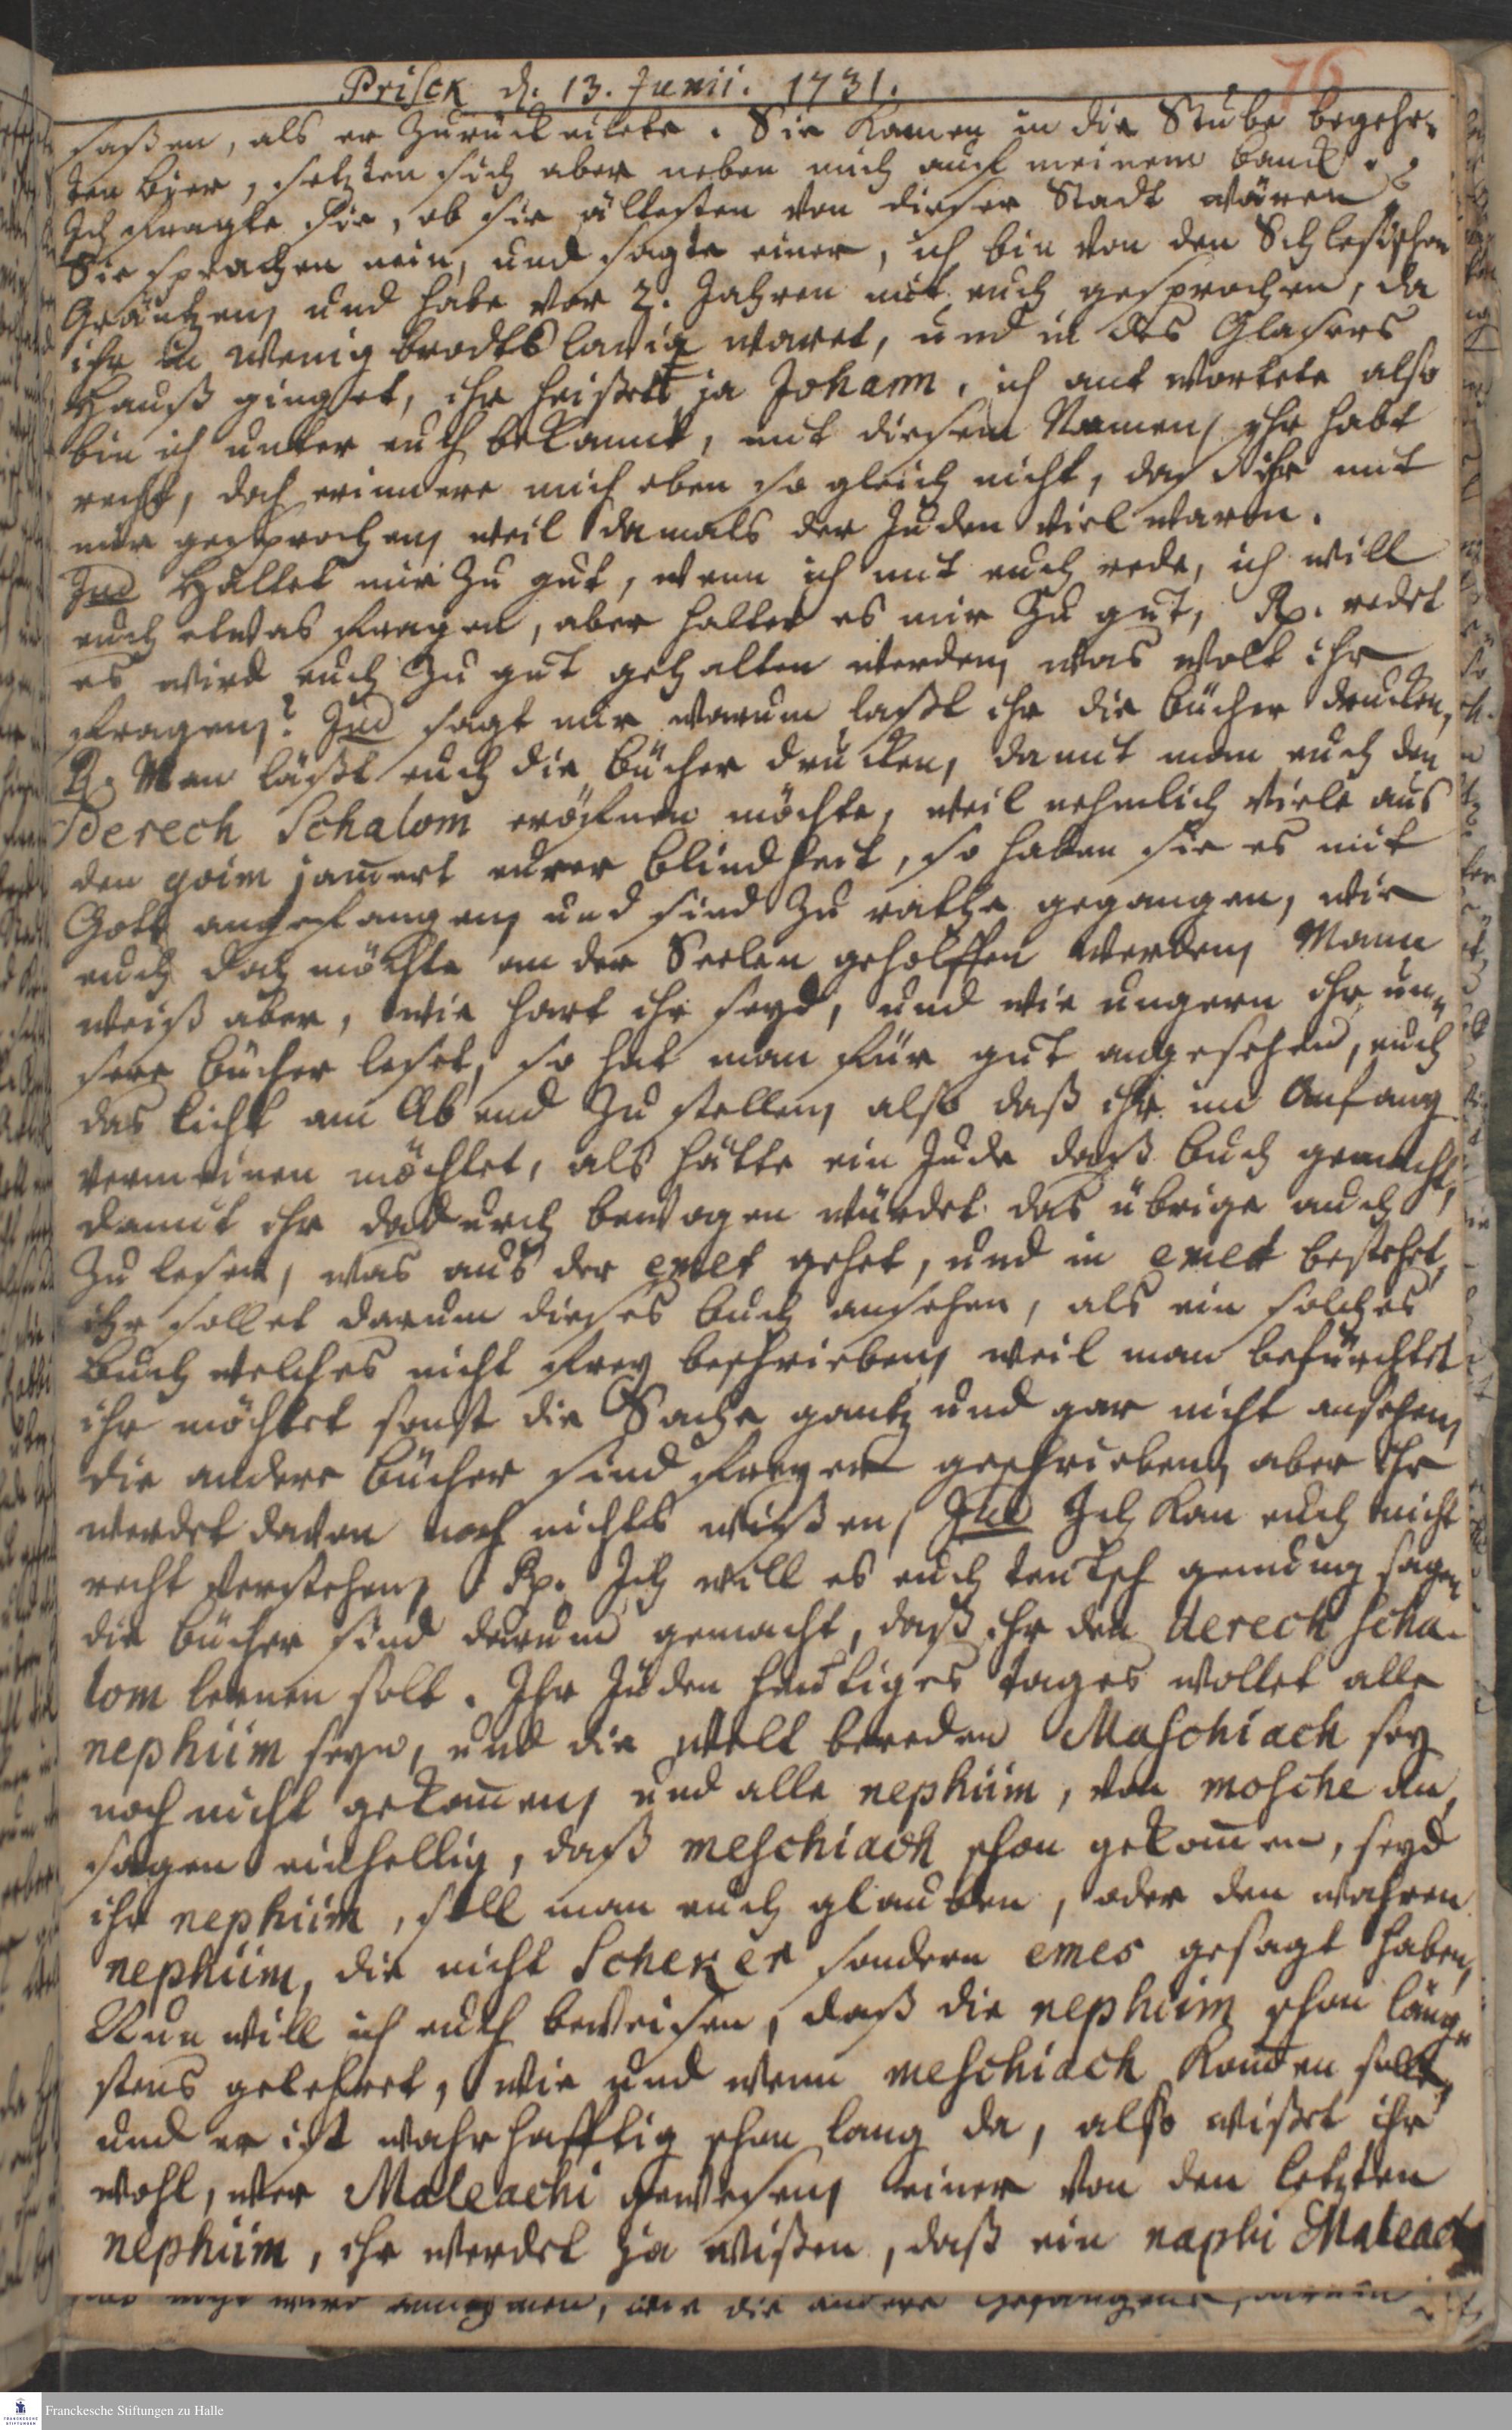 Prisck d. 13. Junii. 1731.
76
saßen, als er zurück eilete. Sie kamen in die Stube begehr-
ten bier, setzten sich aber neben mich auf meinem banck.
Ich fragte sie, ob sie ältesten von dieser Stadt wären?
Sie sprachen nein, und sagte einer, ich bin von den Schlesischen
Gräntzen, und habe vor 2. Jahren mit euch gesprochen, da
ihr in wenig brodtslaviz waret, und in des Glasers
Hauß ginget, ihr heißett ja Johann, ich antwortete also
bin ich unter euch bekannt, mit diesem Namen, ihr habt
recht, doch erinnere mich eben so gleich nicht, daß ihr mit
mir gesprochen, weil damals der Juden viel waren.
Jud Haltet mir zu gut, wenn ich mit euch rede, ich will
euch etwas fragen, aber haltet es mir zu gut, Rp. redet
es wird euch zu gut gehalten werden, was wolt ihr
fragen? Jud sagt mir warum laßt ihr die bücher drucken,
R. Man läßt euch die bücher drucken, damit man euch den
Derech Schalom eröfnen möchte, weil nehmlich viele aus
den goim jamert eurer blindheit, so haben sie es mit
Gott angefangen, und sind zu rathe gegangen, wie
euch doch möchte an der Seelen geholffen werden, Mann
weiß aber, wie hart ihr seyd, und wie ungern ihr un-
sere bücher leset, so hat man für gut angesehen, euch
das licht am Abend zu stellen, also daß ihr im Anfang
vermeinen möchtet, als hätte ein Jude daß buch gemacht,
damit ihr dadurch bewogen würdet das übrige auch
zu lesen, was aus der emet gehet, und in emet bestehet,
ihr sollet darum dieses buch ansehen, als ein solches
buch welches nicht frey beschrieben, weil man befürchtet
ihr möchtet sonst die Sache gantz und gar nicht ansehen,
die andere bücher sind freyer geschrieben, aber ihr
werdet davon noch nichts wißen, Jud Ich kan euch nicht
recht verstehen, Rp. Ich will es euch teutsch genung sagen
die bücher sind darum gemacht, daß ihr den derech scha-
lom lernen solt. Ihr Juden heutiges tages wollet alle
nephiim seyn, und die welt bereden Maschiach sey
noch nicht gekom̅en, und alle nephiim, von mosche an,
sagen einhellig, daß meschiach schon gekom̅en, seyd
ihr nephiim, soll man euch glauben, oder den wahren
nephiim, die nicht Scheker sondern emes gesagt haben,
Nun will ich euch beweisen, daß die nephiim schon läng-
stens gelehret, wie und wenn meschiach kom̅en sollt,
und er ist wahrhafftig schon lang da, also wißet ihr
wohl, wer Maleachi gewesen, einer von den letzten
nephiim, ihr werdet ja wißen, daß ein naphi Maleachi
wird annehmen, wie die andere gefangene,
Franckesche Stiftungen zu Halle